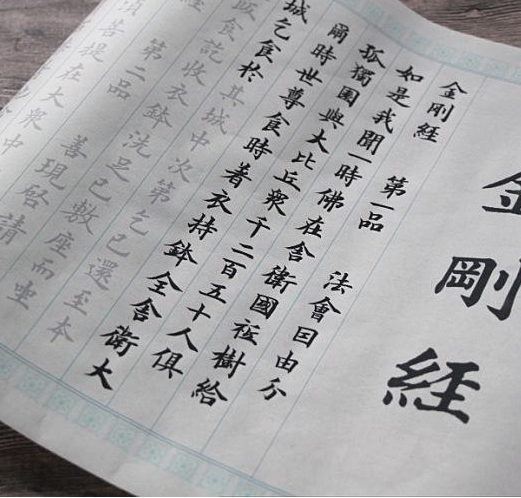 金剛経
金剛経 第一品 法會因由分
如是我聞一時佛在舍衛國祗樹給
孤獨園與大比丘衆千二百五十人俱
爾時世尊食時著衣持鉢全舍衛大
城乞食於其城中次第乞已還至本
飯食訖收衣鉢洗足已敷座而坐
第二品 善現啓請
菩提在大衆中